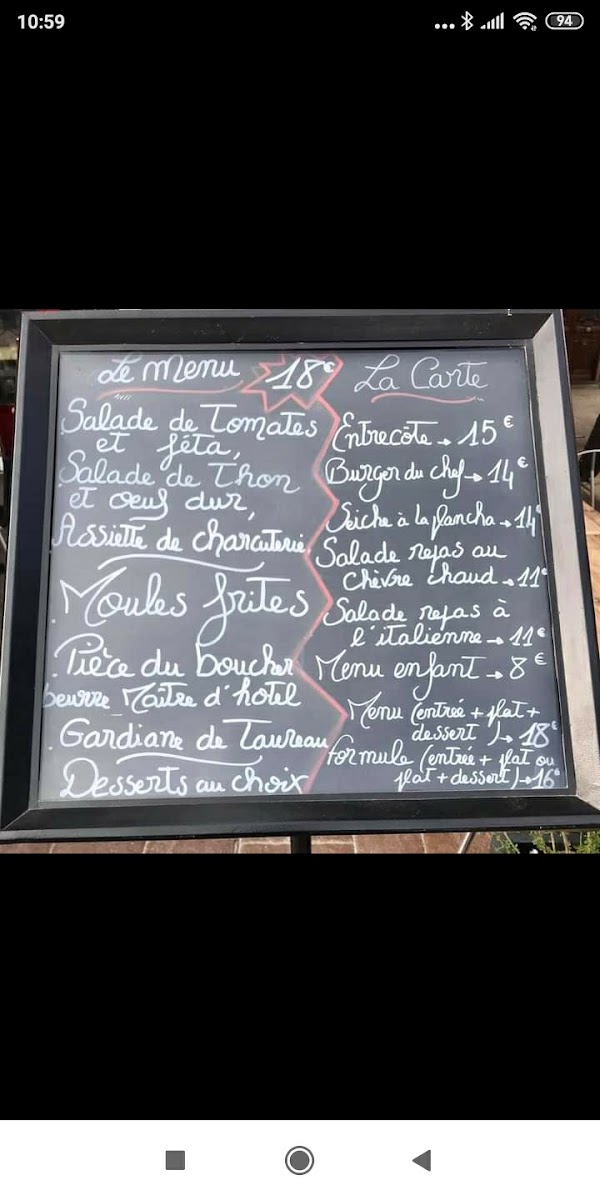 10:59
94
Le Menu 18€
Salade de Tomates
et féta,
Salade de Thon
et oeuf dur,
Assiette de charcuterie.
.Moules frites
.Pièce du boucher
beurre Maître d'hotel
.Gardiane de Taureau
Desserts au choix
La Carte
Entrecote → 15€
Burger du chef → 14€
Seiche à la plancha → 14€
Salade repas au
chèvre chaud → 11€
Salade repas à
l'italienne → 11€
Menu enfant → 8€
Menu (entrée + plat +
dessert) → 18€
formule (entrée + plat ou
plat + dessert) → 16€